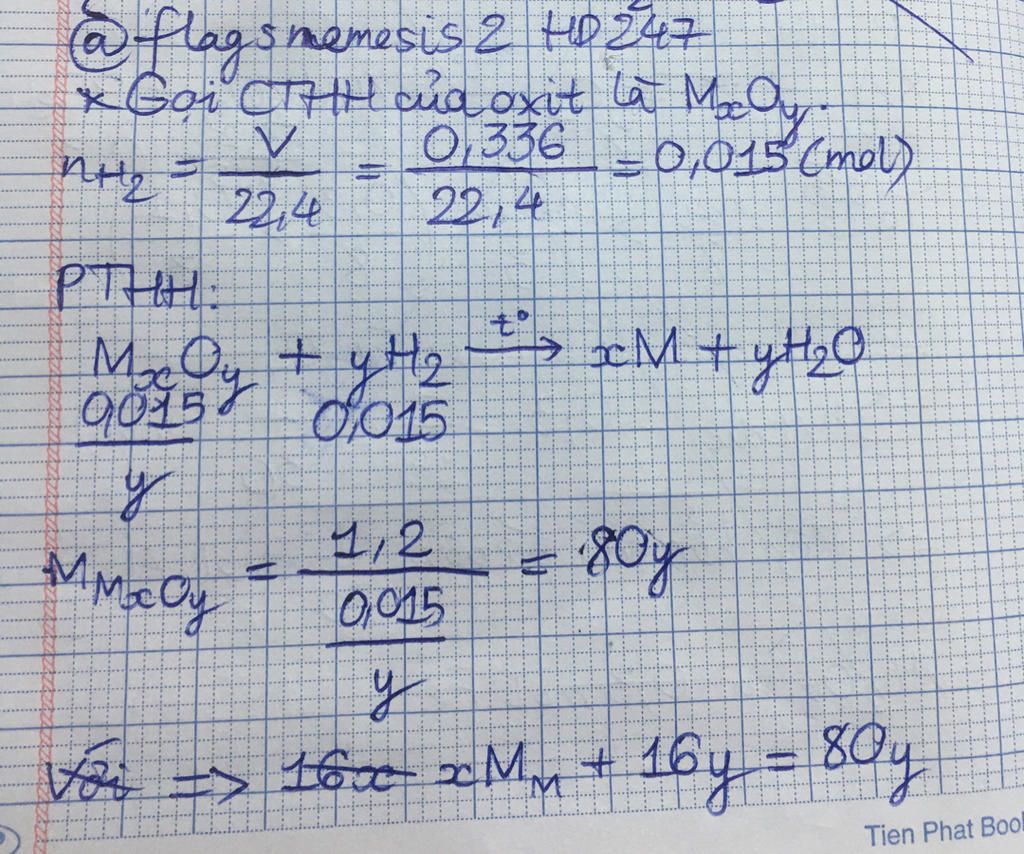 @flagsmemesis2 HD247
* Gọi CTHH của oxit là MxOy.
nH2 = V/22,4 = 0,336/22,4 = 0,015 (mol)
PTHH:
MxOy + yH2 →t° xM + yH2O
0,015/y 0,015
MMxOy = 1,2/(0,015/y) = 80y
Với => 16x xMM + 16y = 80y
Tien Phat Boo